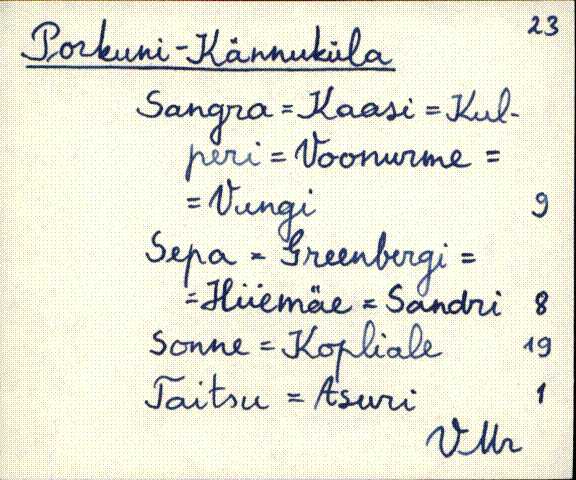 23
Porkuni-Kännuküla
Sangra = Kaasi = Kul-
peri = Voonurme =
= Vungi 9
Sepa = Greenbergi =
= Hiiemäe = Sandri 8
Sonne = Kopliale 19
Taitsu = Asuri 1
VMr